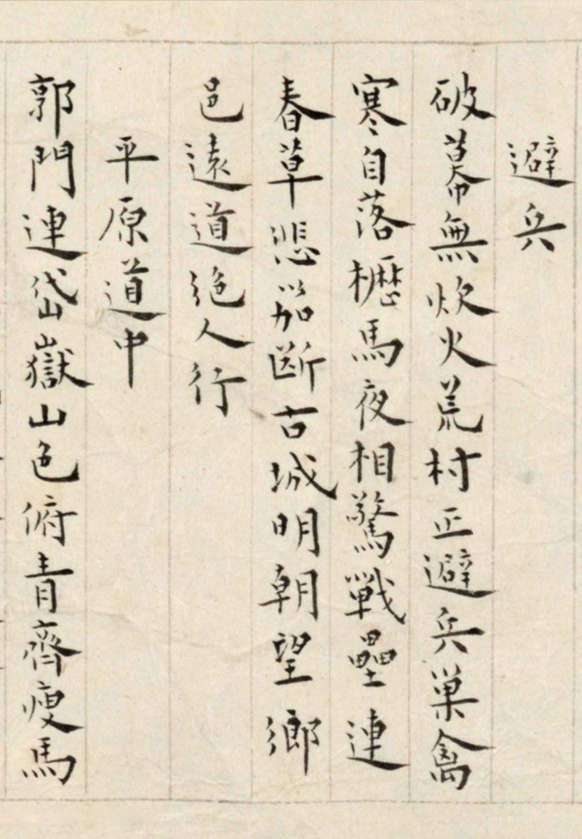 避兵
破幕無炊火荒村正避兵巢禽
寒自落櫪馬夜相驚戰壘連
春草悲笳斷古城明朝望鄉
邑遠道絕人行
平原道中
郭門連岱嶽山色俯青齊瘦馬